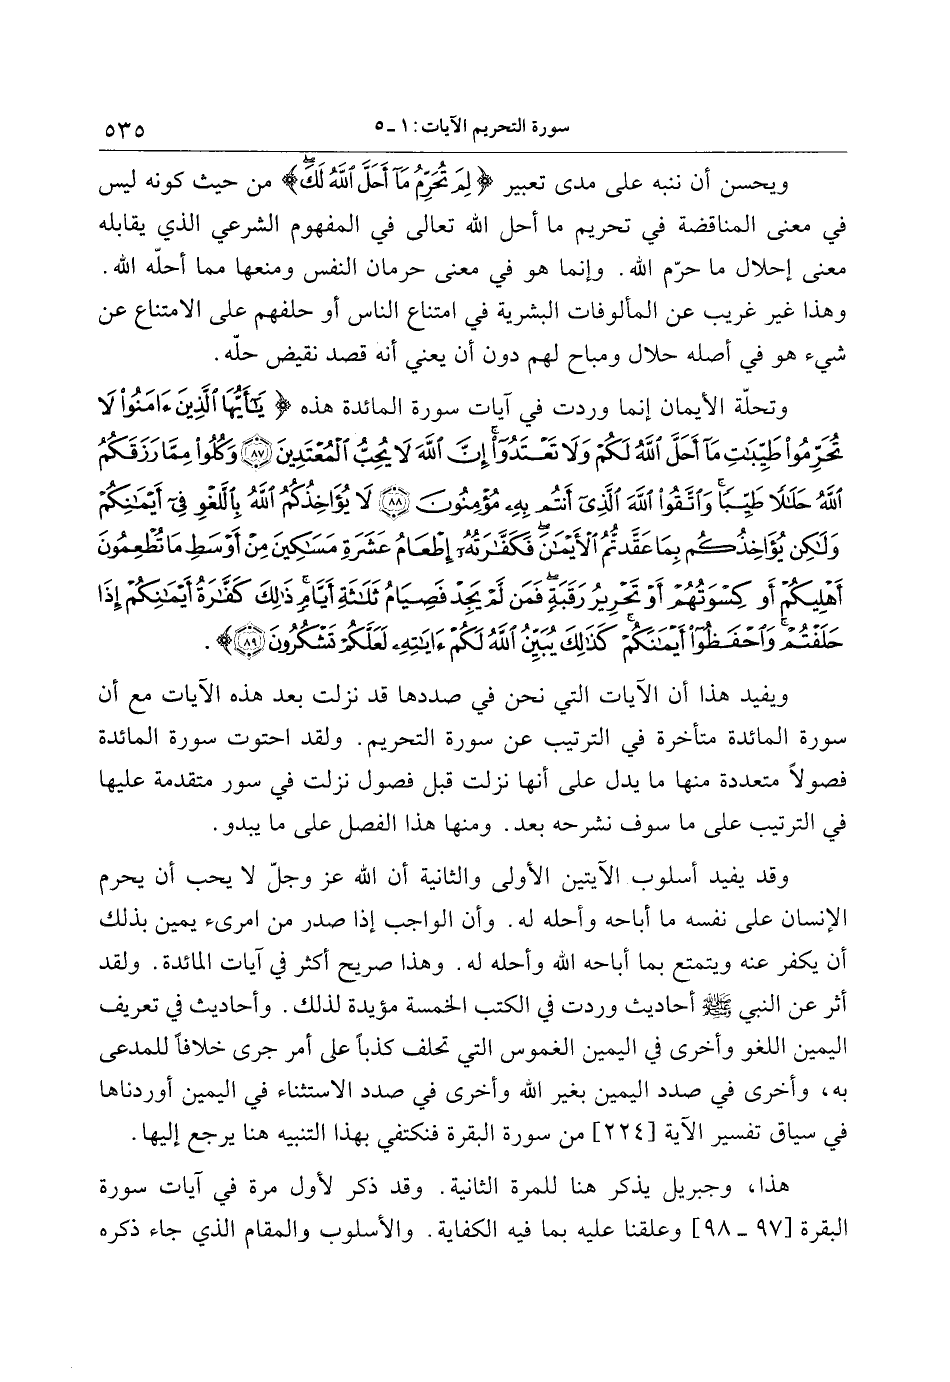 سورة التحريم الآيات: ١ ـ ٥ ٥٣٥
ويحسن أن ننبه على مدى تعبير ﴿ لِمَ تُحَرِّمُ مَآ أَحَلَّ ٱللَّهُ لَكَۖ﴾ من حيث كونه ليس
في معنى المناقضة في تحريم ما أحل الله تعالى في المفهوم الشرعي الذي يقابله
معنى إحلال ما حرّم الله. وإنما هو في معنى حرمان النفس ومنعها مما أحلّه الله.
وهذا غير غريب عن المألوفات البشرية في امتناع الناس أو حلفهم على الامتناع عن
شيء هو في أصله حلال ومباح لهم دون أن يعني أنه قصد نقيض حلّه.
وتحلّة الأيمان إنما وردت في آيات سورة المائدة هذه ﴿ يَـٰٓأَيُّهَا ٱلَّذِينَ ءَامَنُوا۟ لَا
تُحَرِّمُوا۟ طَيِّبَـٰتِ مَآ أَحَلَّ ٱللَّهُ لَكُمْ وَلَا تَعْتَدُوٓا۟ۚ إِنَّ ٱللَّهَ لَا يُحِبُّ ٱلْمُعْتَدِينَ ٨٧ وَكُلُوا۟ مِمَّا رَزَقَكُمُ
ٱللَّهُ حَلَـٰلًا طَيِّبًاۚ وَٱتَّقُوا۟ ٱللَّهَ ٱلَّذِىٓ أَنتُم بِهِۦ مُؤْمِنُونَ ٨٨ لَا يُؤَاخِذُكُمُ ٱللَّهُ بِٱللَّغْوِ فِىٓ أَيْمَـٰنِكُمْ
وَلَـٰكِن يُؤَاخِذُكُم بِمَا عَقَّدتُّمُ ٱلْأَيْمَـٰنَۖ فَكَفَّـٰرَتُهُۥٓ إِطْعَامُ عَشَرَةِ مَسَـٰكِينَ مِنْ أَوْسَطِ مَا تُطْعِمُونَ
أَهْلِيكُمْ أَوْ كِسْوَتُهُمْ أَوْ تَحْرِيرُ رَقَبَةٍۖ فَمَن لَّمْ يَجِدْ فَصِيَامُ ثَلَـٰثَةِ أَيَّامٍۚ ذَٰلِكَ كَفَّـٰرَةُ أَيْمَـٰنِكُمْ إِذَا
حَلَفْتُمْۚ وَٱحْفَظُوٓا۟ أَيْمَـٰنَكُمْۚ كَذَٰلِكَ يُبَيِّنُ ٱللَّهُ لَكُمْ ءَايَـٰتِهِۦ لَعَلَّكُمْ تَشْكُرُونَ ٨٩﴾.
ويفيد هذا أن الآيات التي نحن في صددها قد نزلت بعد هذه الآيات مع أن
سورة المائدة متأخرة في الترتيب عن سورة التحريم. ولقد احتوت سورة المائدة
فصولاً متعددة منها ما يدل على أنها نزلت قبل فصول نزلت في سور متقدمة عليها
في الترتيب على ما سوف نشرحه بعد. ومنها هذا الفصل على ما يبدو.
وقد يفيد أسلوب الآيتين الأولى والثانية أن الله عز وجلّ لا يحب أن يحرم
الإنسان على نفسه ما أباحه وأحله له. وأن الواجب إذا صدر من امرىء يمين بذلك
أن يكفر عنه ويتمتع بما أباحه الله وأحله له. وهذا صريح أكثر في آيات المائدة. ولقد
أثر عن النبي ﷺ أحاديث وردت في الكتب الخمسة مؤيدة لذلك. وأحاديث في تعريف
اليمين اللغو وأخرى في اليمين الغموس التي تحلف كذباً على أمر جرى خلافاً للمدعى
به، وأخرى في صدد اليمين بغير الله وأخرى في صدد الاستثناء في اليمين أوردناها
في سياق تفسير الآية [٢٢٤] من سورة البقرة فنكتفي بهذا التنبيه هنا يرجع إليها.
هذا، وجبريل يذكر هنا للمرة الثانية. وقد ذكر لأول مرة في آيات سورة
البقرة [٩٧ ـ ٩٨] وعلقنا عليه بما فيه الكفاية. والأسلوب والمقام الذي جاء ذكره